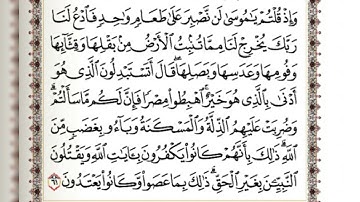 وَإِذْ قُلْتُمْ يَٰمُوسَىٰ لَن نَّصْبِرَ عَلَىٰ طَعَامٍ وَٰحِدٍ فَٱدْعُ لَنَا
رَبَّكَ يُخْرِجْ لَنَا مِمَّا تُنۢبِتُ ٱلْأَرْضُ مِنۢ بَقْلِهَا وَقِثَّآئِهَا
وَفُومِهَا وَعَدَسِهَا وَبَصَلِهَا ۖ قَالَ أَتَسْتَبْدِلُونَ ٱلَّذِى هُوَ
أَدْنَىٰ بِٱلَّذِى هُوَ خَيْرٌ ۚ ٱهْبِطُوا۟ مِصْرًا فَإِنَّ لَكُم مَّا سَأَلْتُمْ ۗ
وَضُرِبَتْ عَلَيْهِمُ ٱلذِّلَّةُ وَٱلْمَسْكَنَةُ وَبَآءُو بِغَضَبٍ مِّنَ
ٱللَّهِ ۗ ذَٰلِكَ بِأَنَّهُمْ كَانُوا۟ يَكْفُرُونَ بِـَٔايَٰتِ ٱللَّهِ وَيَقْتُلُونَ
ٱلنَّبِيِّـۧنَ بِغَيْرِ ٱلْحَقِّ ۗ ذَٰلِكَ بِمَا عَصَوا۟ وَّكَانُوا۟ يَعْتَدُونَ ٦١